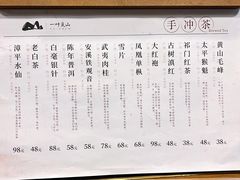 手冲茶
Brewed Tea
黄山毛峰 38元
太平猴魁 48元
祁门红茶 38元
古树滇红 48元
大红袍 98元
凤凰单枞 68元
雪片 68元
武夷肉桂 78元
安溪铁观音 58元
陈年普洱 58元
白毫银针 88元
老白茶 48元
漳平水仙 98元